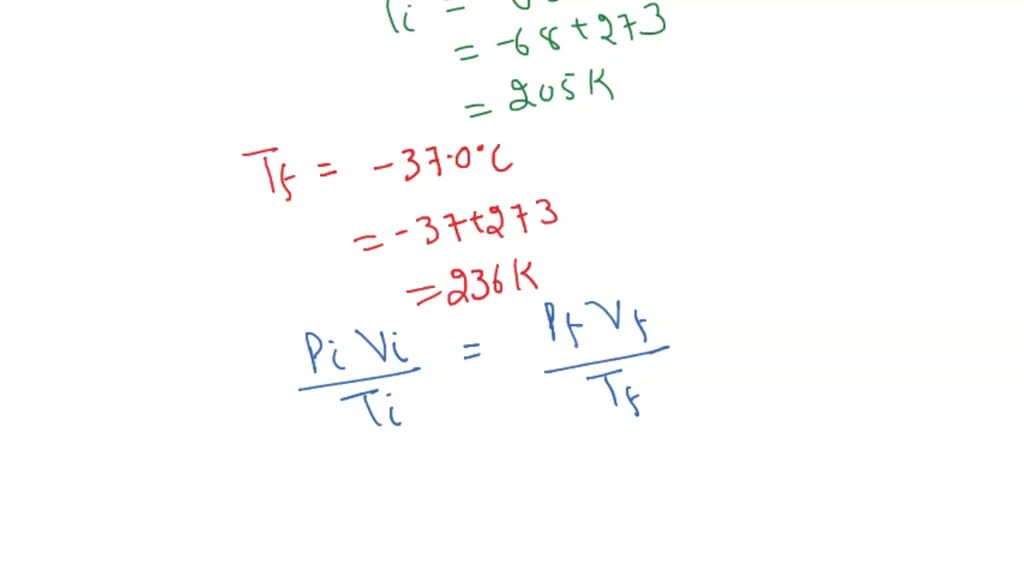 Ti =
= -68+273
= 205K
Tf = -37.0°C
= -37+273
= 236K
Pi Vi / Ti = Pf Vf / Tf